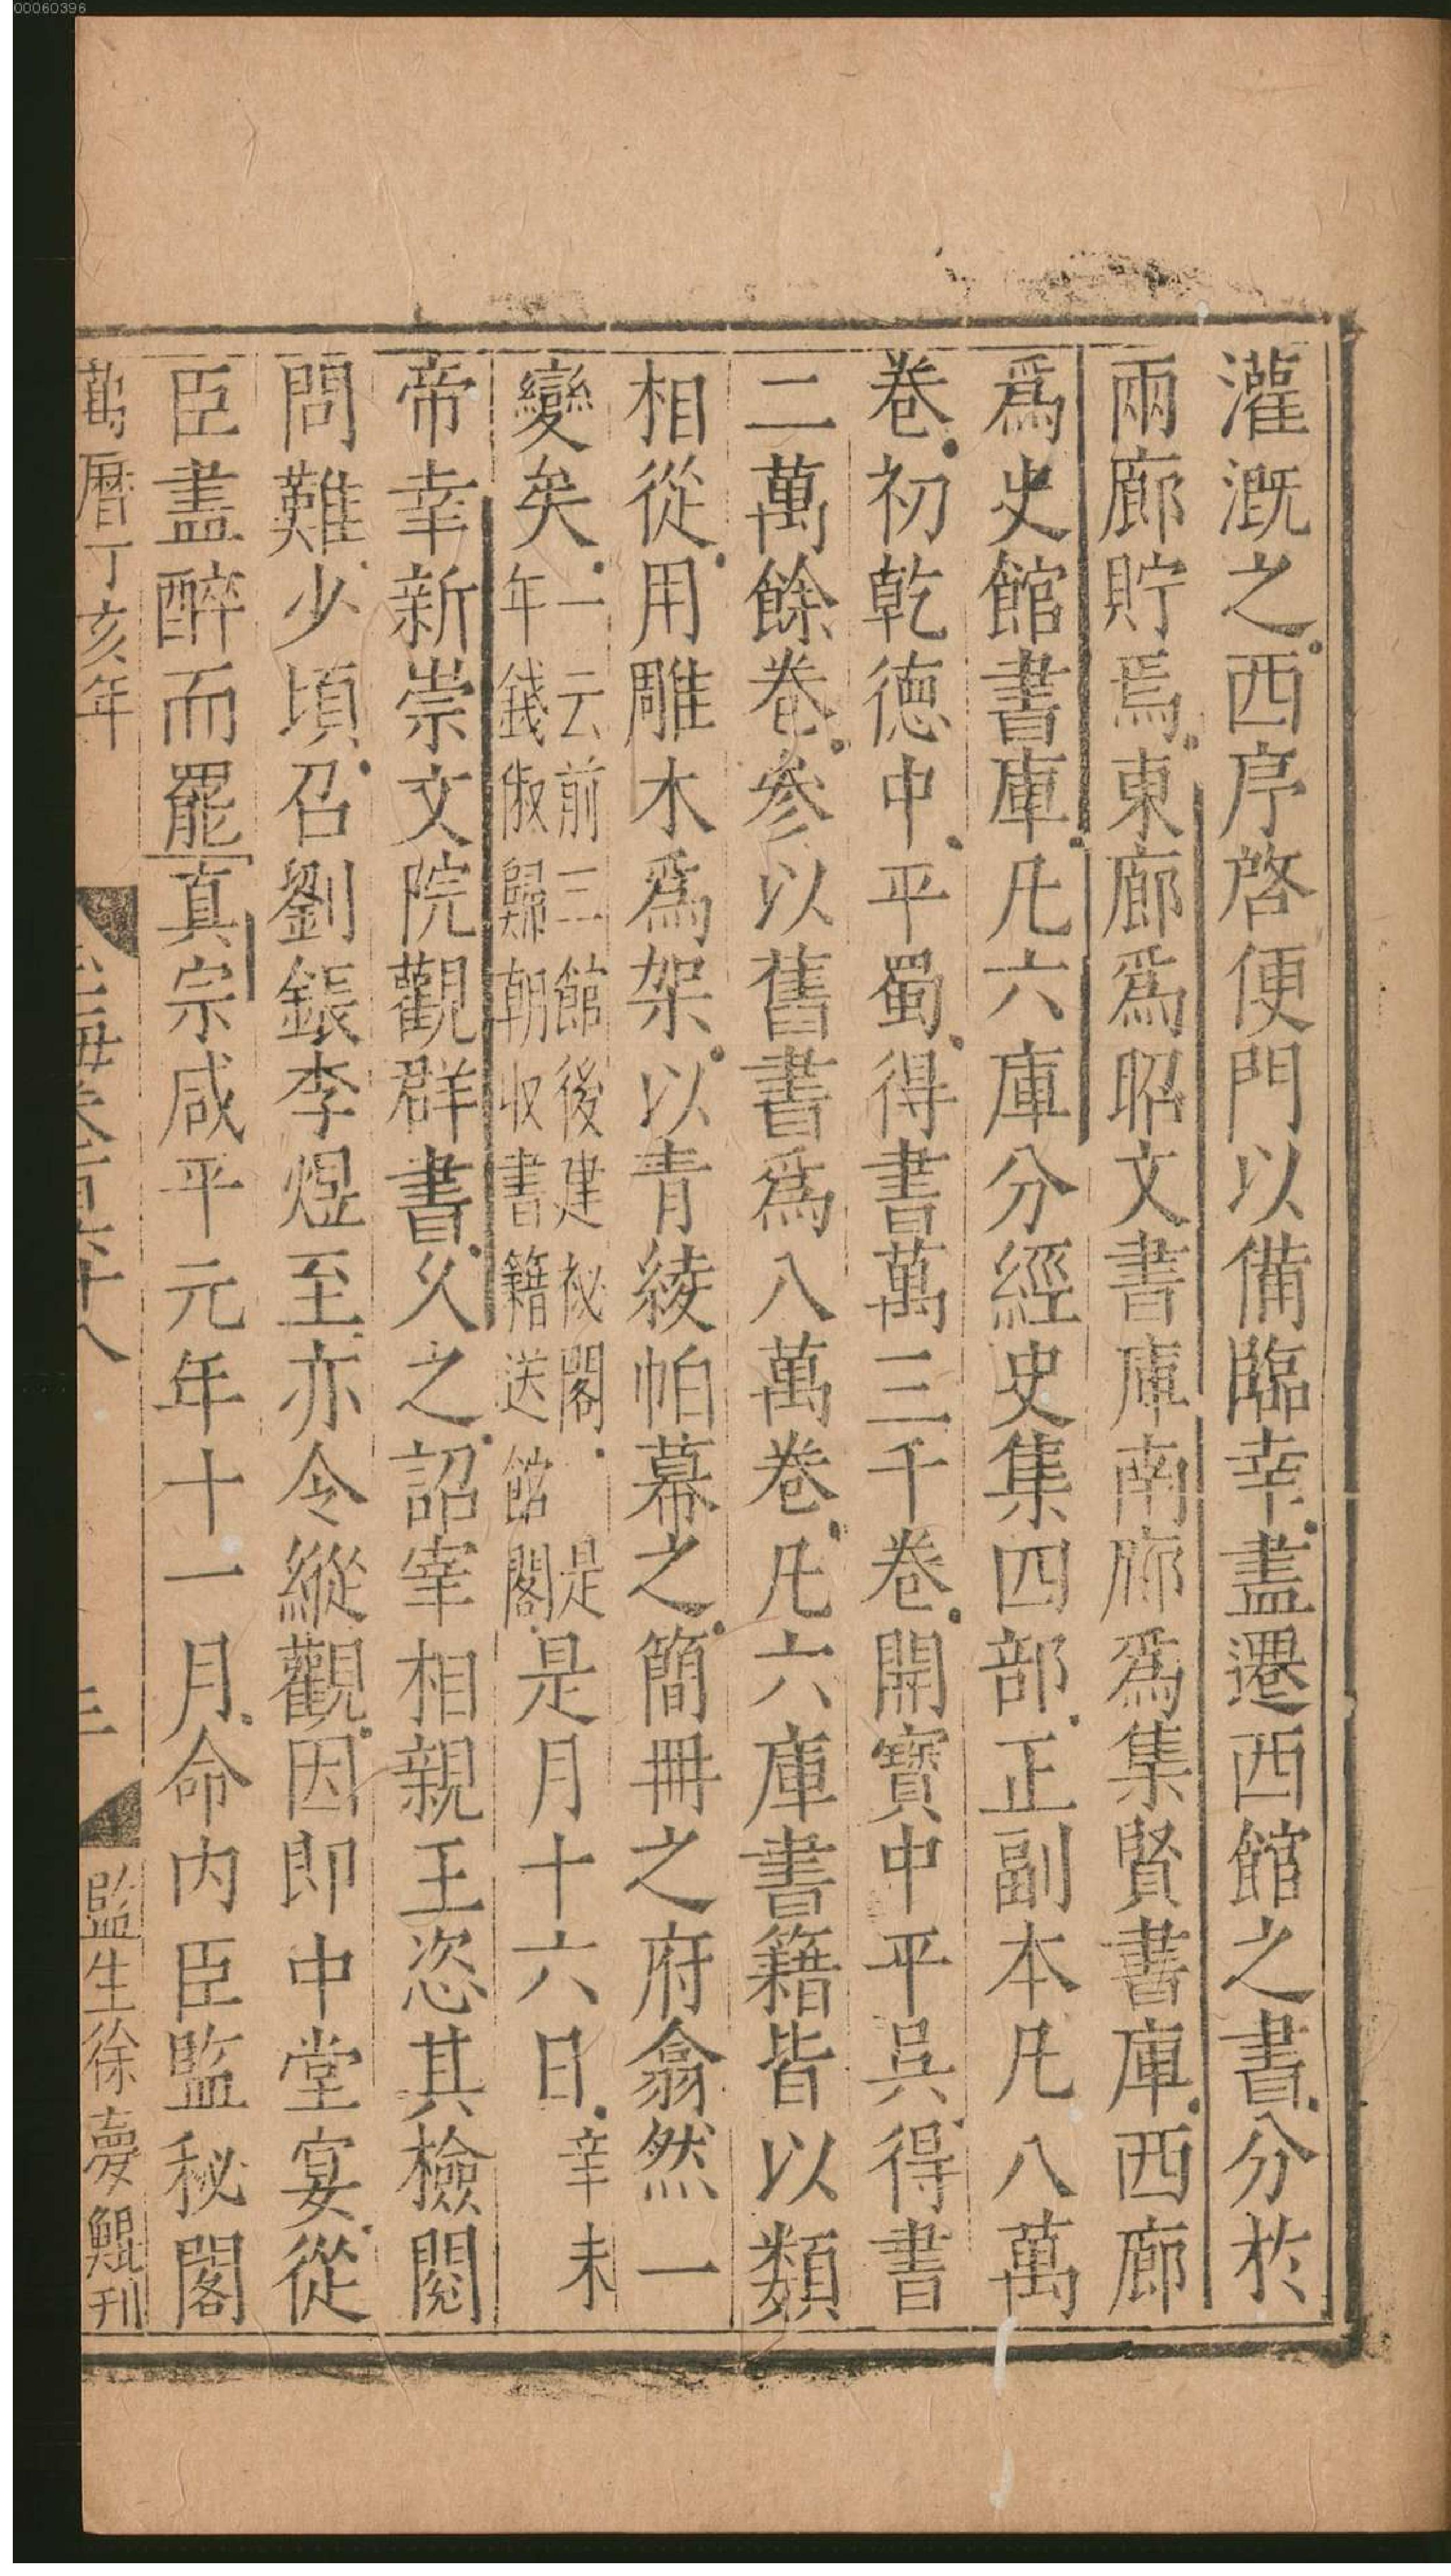 00060396
灌漑之西序啓便門以備臨幸盡遷西館之書分於
兩廊貯焉東廊爲昭文書庫南廊爲集賢書庫西廊
爲史館書庫凡六庫分經史集四部正副本凡八萬
卷初乾德中平蜀得書萬三千卷開寶中平吳得書
二萬餘卷參以舊書爲八萬卷凡六庫書籍皆以類
相從用雕木爲架以青綾帕幕之簡冊之府翕然一
變矣一云前三館後建祕閣是年錢俶歸朝收書籍送館閣是月十六日辛未
帝幸新崇文院觀群書久之詔宰相親王恣其檢閱
問難少頃召劉鋹李煜至亦令縱觀因即中堂宴從
臣盡醉而罷真宗咸平元年十一月命内臣監秘閣
萬曆丁亥年
玉海卷百六十八
三
監生徐夢鯤刊